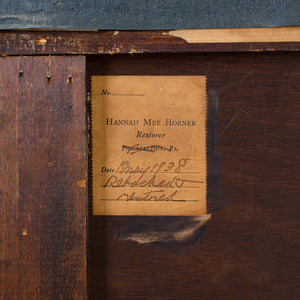 No.
HANNAH MEE HORNER
Restorer
PHILADELPHIA, PA.
Date May 1938
restored